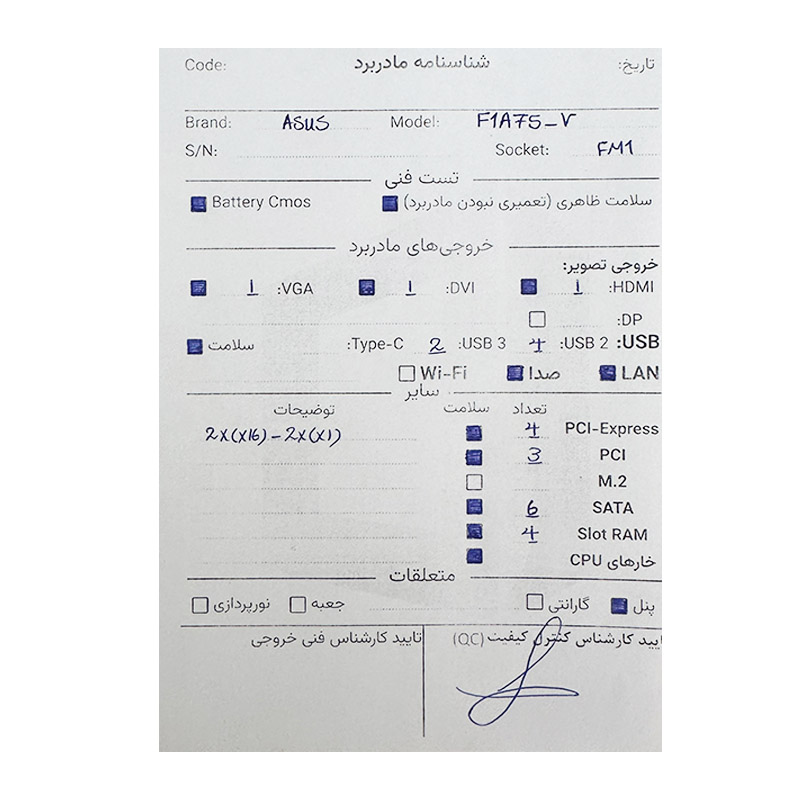 تاریخ: شناسنامه مادربرد Code:
Brand: ASUS Model: F1A75_V
S/N: Socket: FM1
تست فنی
سلامت ظاهری (تعمیری نبودن مادربرد) Battery Cmos
خروجی‌های مادربرد
خروجی تصویر:
HDMI: 1 DVI: 1 VGA: 1
DP:
USB: USB 2: 4 USB 3: 2 Type-C: سلامت
LAN صدا Wi-Fi
سایر
تعداد سلامت توضیحات
PCI-Express 4 2X(X16) - 2X(X1)
PCI 3
M.2
SATA 6
Slot RAM 4
خارهای CPU
متعلقات
پنل گارانتی جعبه نورپردازی
ایید کارشناس کنترل کیفیت (QC) تایید کارشناس فنی خروجی